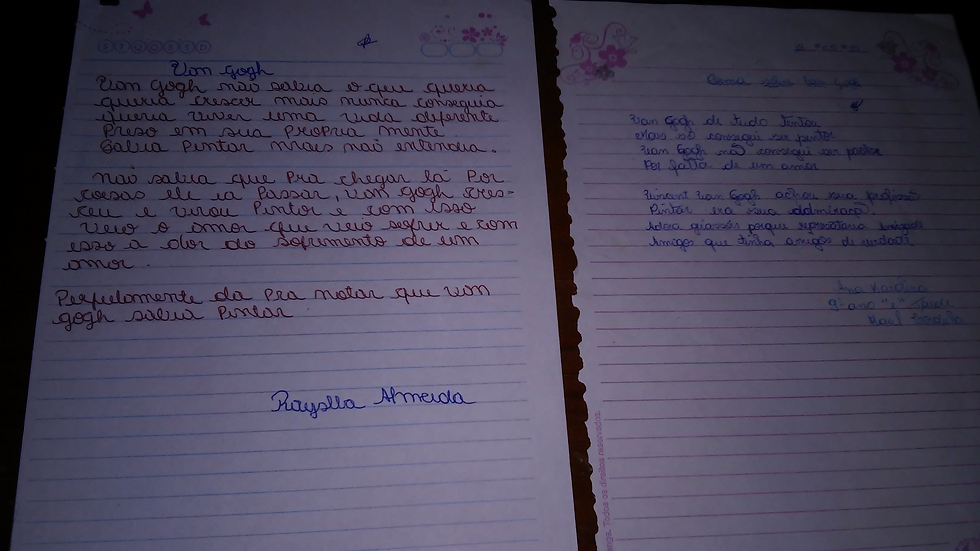 Van gogh
Van gogh não sabia o que queria
queria crescer mais nunca conseguia
queria viver uma vida diferente
Preso em sua Propria mente
Sabia Pintar mais não entendia.
não sabia que Pra chegar lá Por
coisas ele ia Passar, van gogh cres-
ceu e virou Pintor e com isso
veio o amor que veio sofrer e com
isso a dor do sofrimento de um
amor.
Perfeitamente da Pra notar que van
gogh sabia Pintar
Rayslla Almeida
Van Gogh de tudo tentou
Mais não consegui ser pintor
Van Gogh não consegui ser pastor
Por falta de um amor
Vincent Van Gogh achou sua profissão
Pintar era sua admiração
Adora girassóis porque representava amizade
Amigos que tinha amigos de verdade
Ana Karolina
9º ano
Todos os direitos reservados.